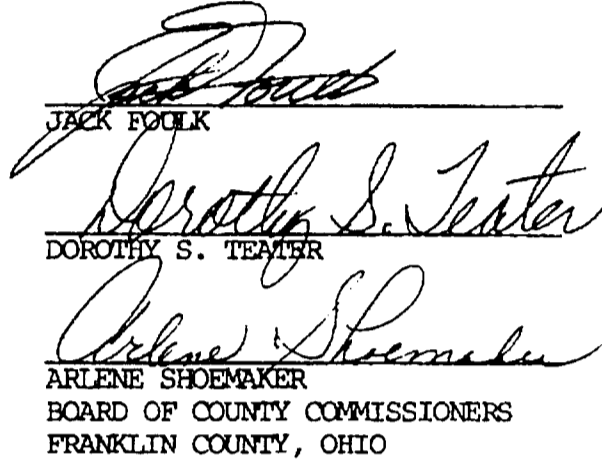 Jack Foulk
JACK FOULK
Dorothy S. Teater
DOROTHY S. TEATER
Arlene Shoemaker
ARLENE SHOEMAKER
BOARD OF COUNTY COMMISSIONERS
FRANKLIN COUNTY, OHIO